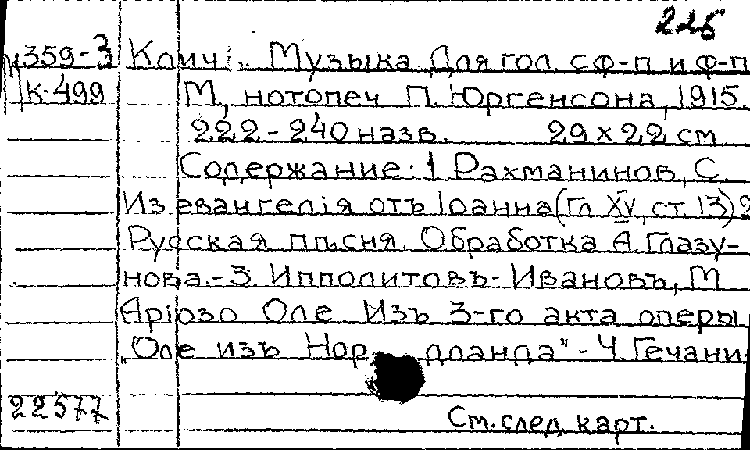 225
359-3 Клич. Музыка Для гол. с ф-п и ф-п
К-499 М., нотопеч П. Юргенсона, 1915.
222-240 назв. 29 x 22 см
Содержание: 1 Рахманинов, С.
Из евангелія отъ Іоанна (Гл XV, ст. 13) 2
Русская пѣсня. Обработка А. Глазу-
нова.-3. Ипполитовъ-Ивановъ, М
Аріозо Оле Изъ 3-го акта оперы
"Оле изъ Нордланда" - 4. Гечани
22577 См. след. карт.